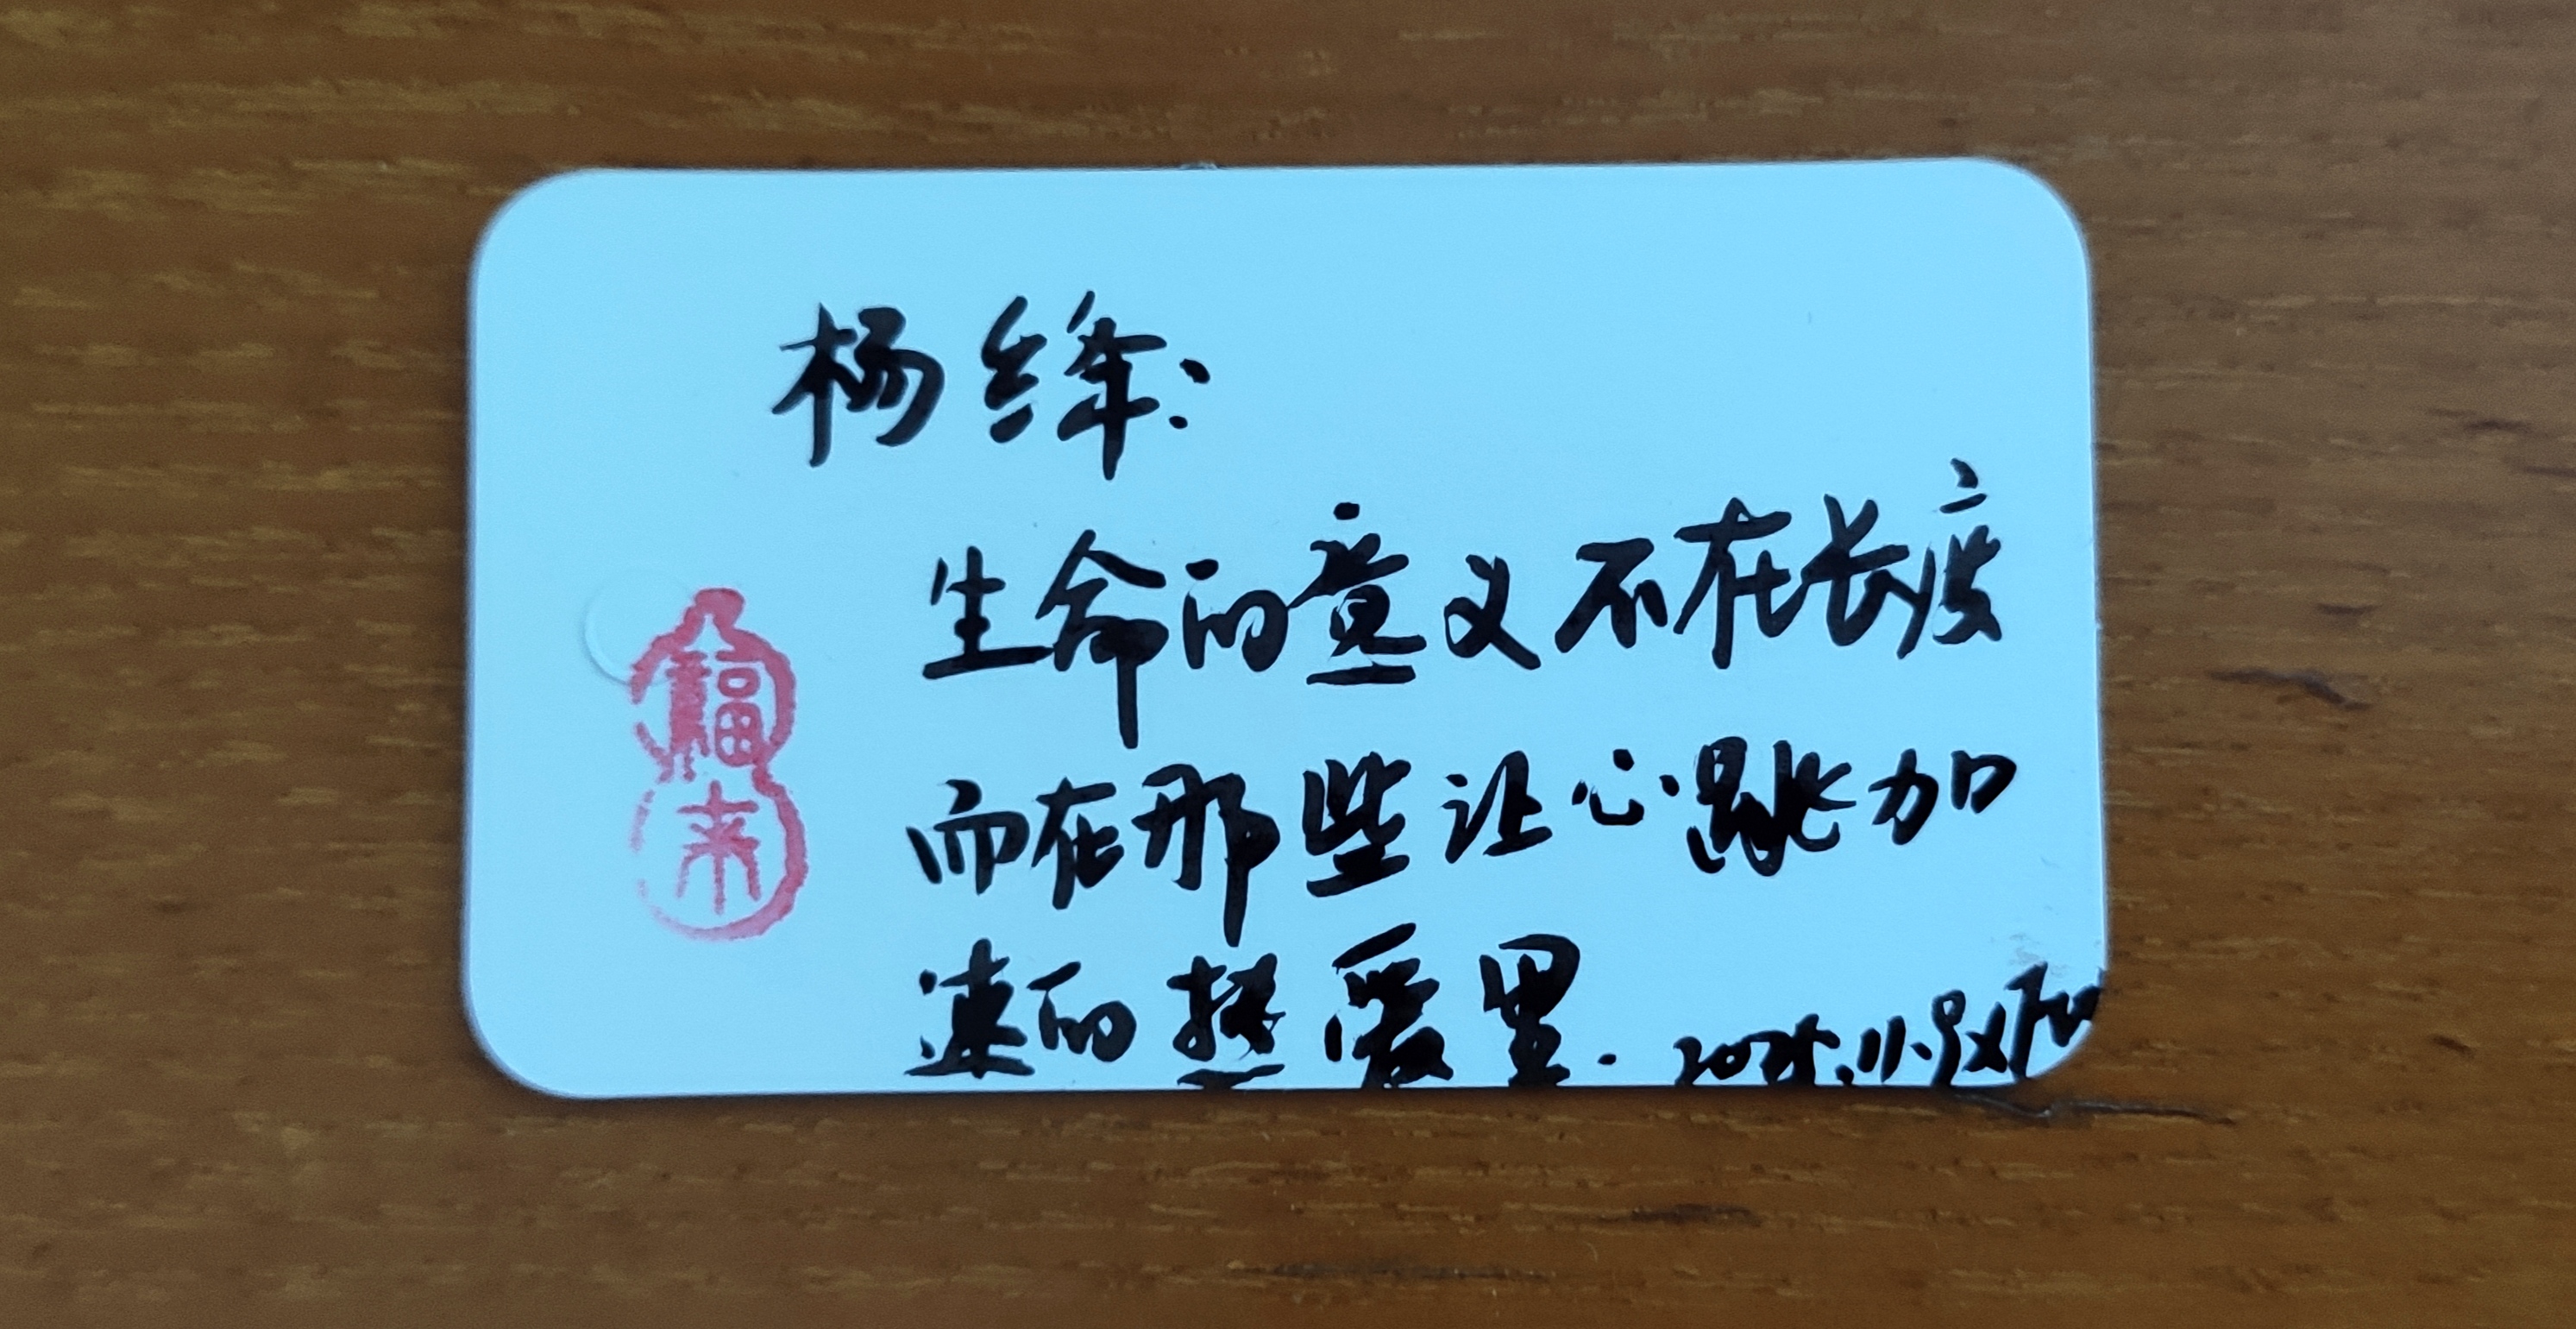 杨绛:
生命的意义不在长度
而在那些让心跳加
速的热爱里.
2025.11.9
福来